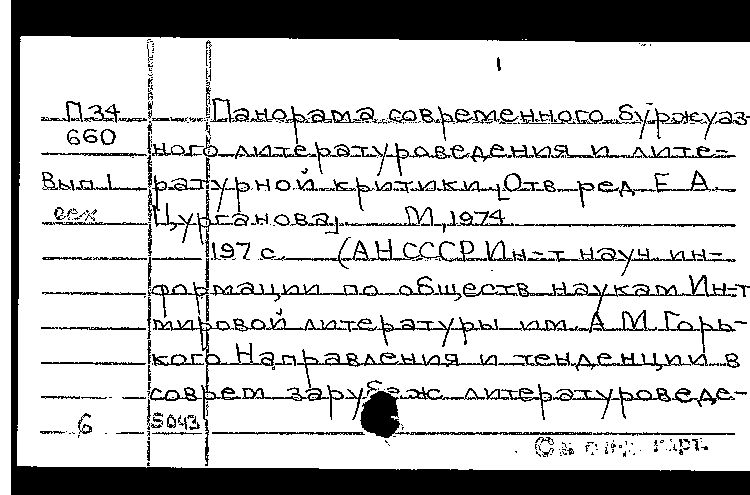 П34 Панорама современного буржуаз-
660 ного литературоведения и лите-
Вып 1 ратурной критики [Отв ред Е А
Цурганова] М, 1974
197 с. (АН СССР Ин-т науч ин-
формации по обществ наукам Ин-т
мировой литературы им А М Горь-
кого Направления и тенденции в
соврем зарубеж литературоведе-
6 5043